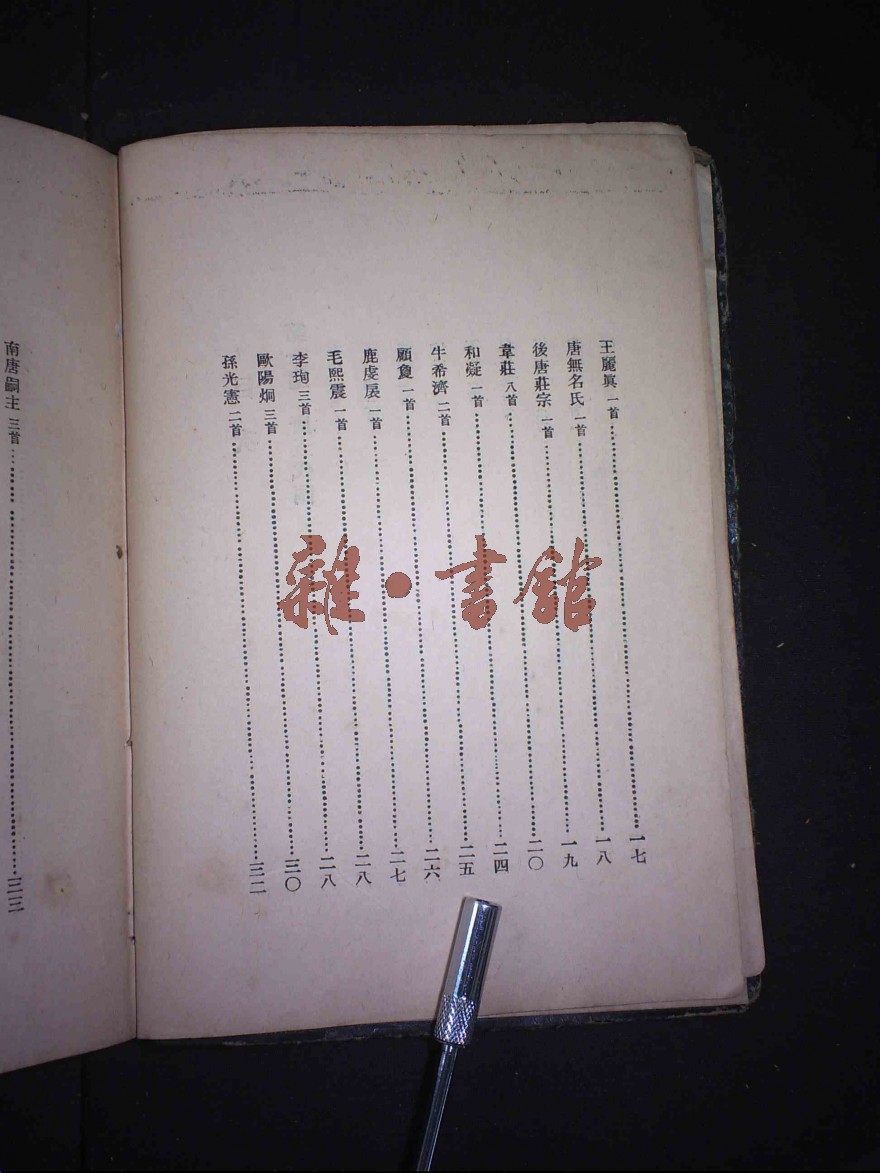 王麗眞 一首 一七
唐無名氏 一首 一八
後唐莊宗 一首 一九
韋莊 八首 二〇
和凝 一首 二四
牛希濟 二首 二五
顧敻 一首 二六
鹿虔扆 一首 二七
毛熙震 一首 二八
李珣 三首 二八
歐陽炯 三首 三〇
孫光憲 二首 三二
南唐嗣主 三首 三三
雜·書館